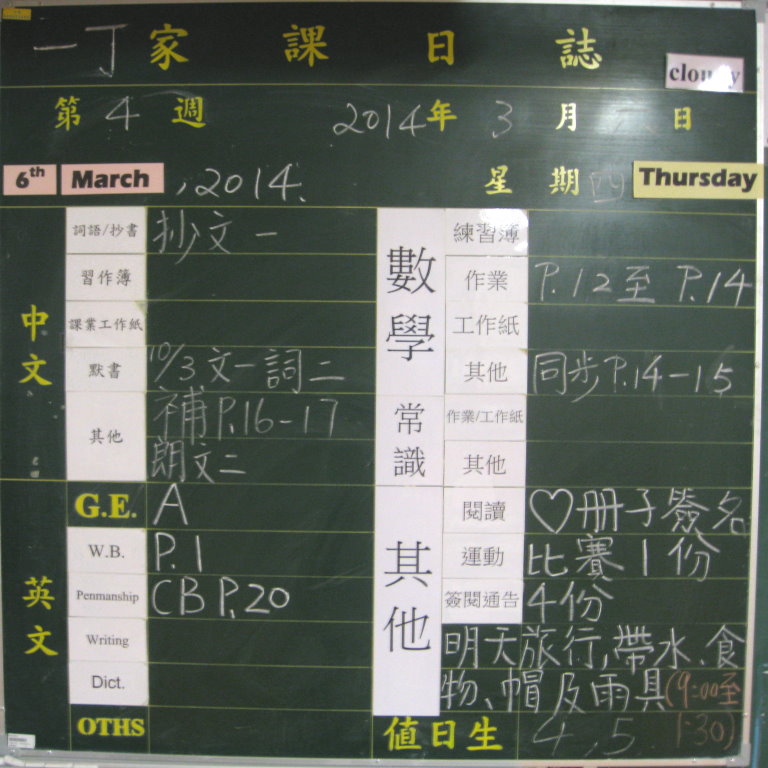 一丁家課日誌
cloudy
第4週 2014年3月 日
6th March, 2014. 星期四 Thursday
中文
詞語/抄書 抄文一
習作簿
課業工作紙
默書 10/3文一詞二
其他 補P.16-17
朗文二
英文
G.E. A
W.B. P.1
Penmanship CB P.20
Writing
Dict.
OTHS
數學
練習簿
作業 P.12至P.14
工作紙
其他 同步P.14-15
常識
作業/工作紙
其他
其他
閱讀 ♡冊子簽名
運動 比賽1份
簽閱通告 4份
明天旅行,帶水、食
物、帽及雨具(9:00至
1:30)
值日生 4,5